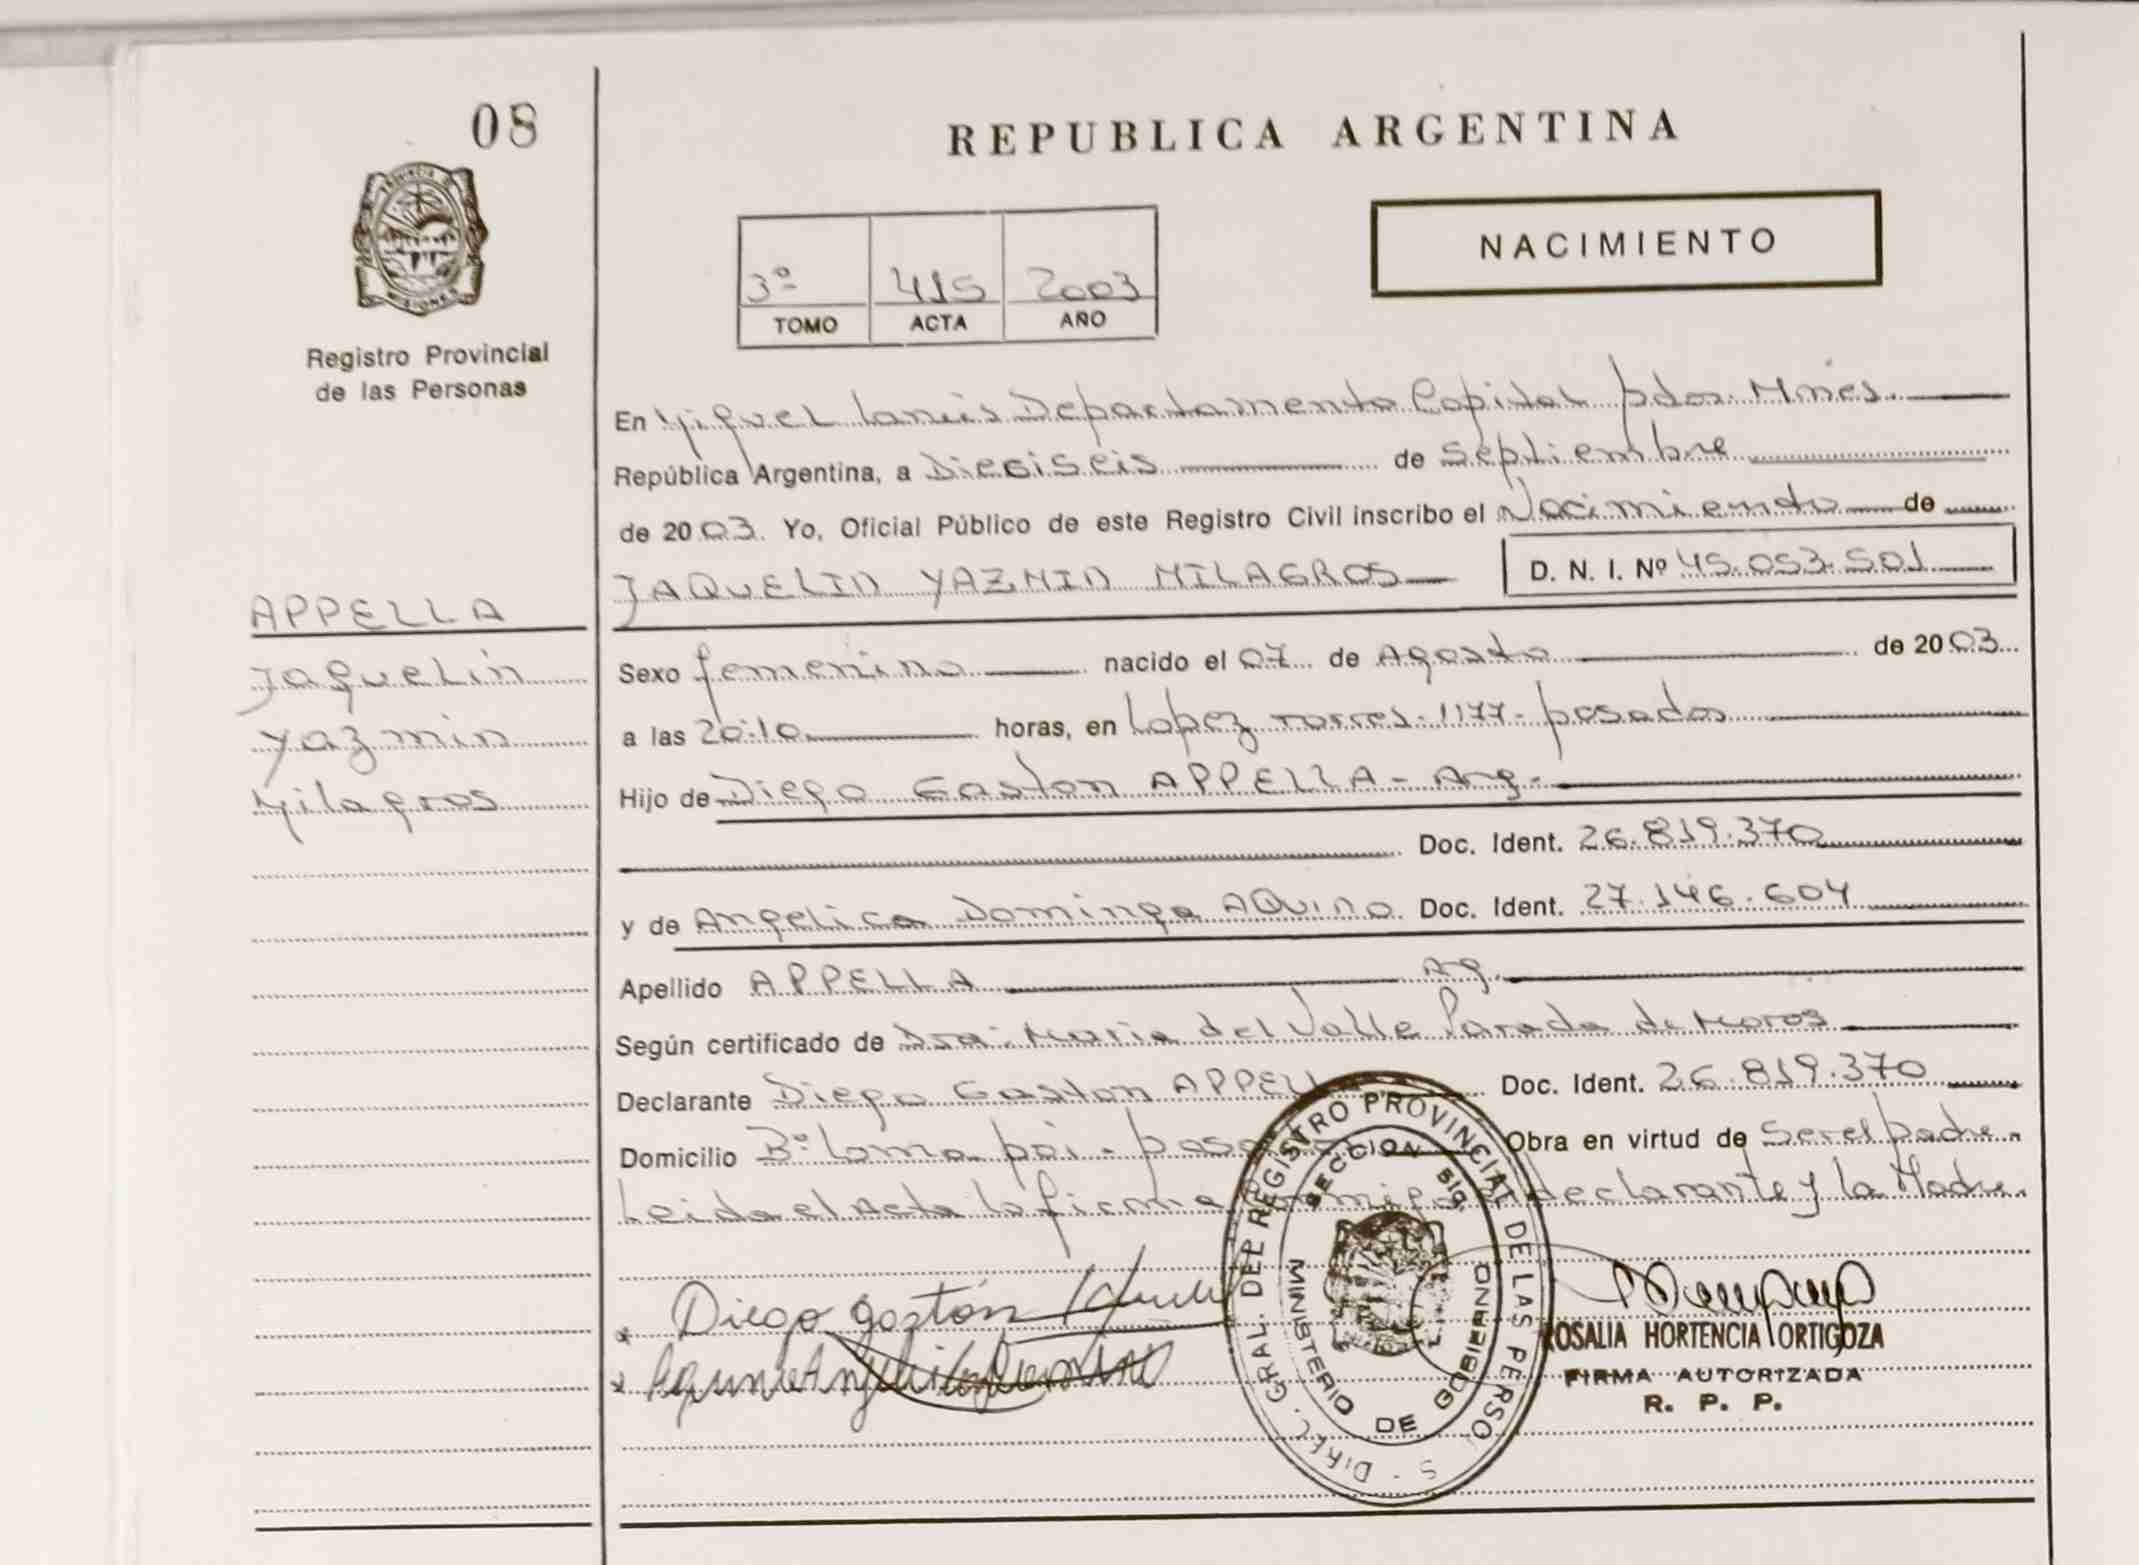 08
REPUBLICA ARGENTINA
PROVINCIA DE MISIONES
Registro Provincial
de las Personas
NACIMIENTO
3º 415 2003
TOMO ACTA AÑO
En Miguel Lanús Departamento Capital pdas. Mnes.
República Argentina, a Dieciseis de Septiembre
de 2003. Yo, Oficial Público de este Registro Civil inscribo el Nacimiento de
JAQUELIN YAZMIN MILAGROS D. N. I. Nº 45.053.501
APPELLA
Jaquelin
Yazmin
Milagros
Sexo femenino nacido el 07 de Agosto de 2003
a las 20:10 horas, en Lopez Torres-1177-posadas
Hijo de Diego Gaston APPELLA - Arg-
Doc. Ident. 26.819.370
y de Angelica Dominga AQuino Doc. Ident. 27.146.604
Apellido APPELLA Arg.
Según certificado de Dra: Maria del Valle Parada de Moros
Declarante Diego Gaston APPELLA Doc. Ident. 26.819.370
Domicilio Bº Loma poi - Obra en virtud de Ser el padre.
Leida el Acta la firma declarante y la Madre.
Diego gastón
DIREC. GRAL. DEL REGISTRO PROVINCIAL DE LAS PERSONAS
SECCION
MINISTERIO DE GOBIERNO
ROSALIA HORTENCIA ORTIGOZA
FIRMA AUTORIZADA
R. P. P.